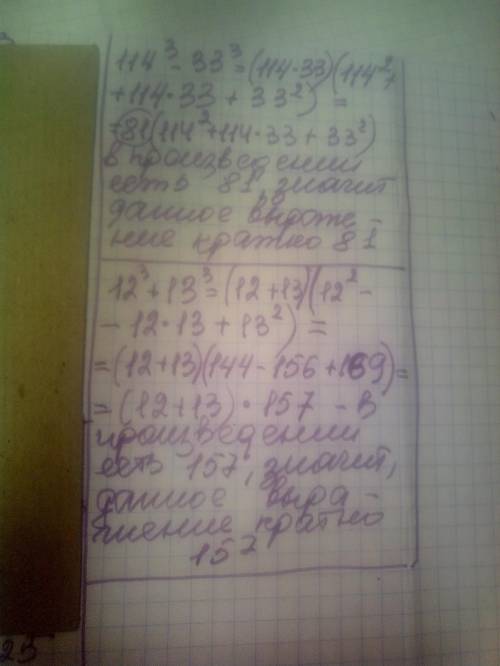 114³ - 33³ = (114-33)(114² +
+ 114·33 + 33²) =
= 81(114² + 114·33 + 33²)
в произведении
есть 81, значит
данное выраже -
ние кратно 81
12³ + 13³ = (12+13)(12² -
- 12·13 + 13²) =
= (12+13)(144 - 156 + 169) =
= (12+13)·157 - в
произведении
есть 157, значит,
данное выра -
жение кратно
157